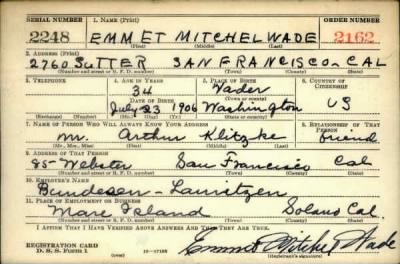 SERIAL NUMBER 1. NAME (Print) ORDER NUMBER
2248 EMMET MITCHEL WADE 2162
(First) (Middle) (Last)
2. ADDRESS (Print)
2760 SUTTER SAN FRANCISCO - CAL
(Number and street or R. F. D. number) (Town) (County) (State)
3. TELEPHONE 4. AGE IN YEARS 5. PLACE OF BIRTH 6. COUNTRY OF CITIZENSHIP
34 Vader
DATE OF BIRTH (Town or county)
July 23 1906 Washington US
(Exchange) (No.) (Mo.) (Day) (Yr.) (State or country)
7. NAME OF PERSON WHO WILL ALWAYS KNOW YOUR ADDRESS 8. RELATIONSHIP OF THAT PERSON
Mr. Arthur Klitzke friend
(Mr., Mrs., Miss) (First) (Middle) (Last)
9. ADDRESS OF THAT PERSON
85 - Webster San Francisco Cal
(Number and street or R. F. D. number) (Town) (County) (State)
10. EMPLOYER'S NAME
Bundesen - Lauritzen
11. PLACE OF EMPLOYMENT OR BUSINESS
Mare Island Solano Cal.
(Number and street or R. F. D. number) (Town) (County) (State)
I AFFIRM THAT I HAVE VERIFIED ABOVE ANSWERS AND THAT THEY ARE TRUE.
REGISTRATION CARD
D. S. S. Form 1 Emmet Mitchel Wade
(Registrant's signature)